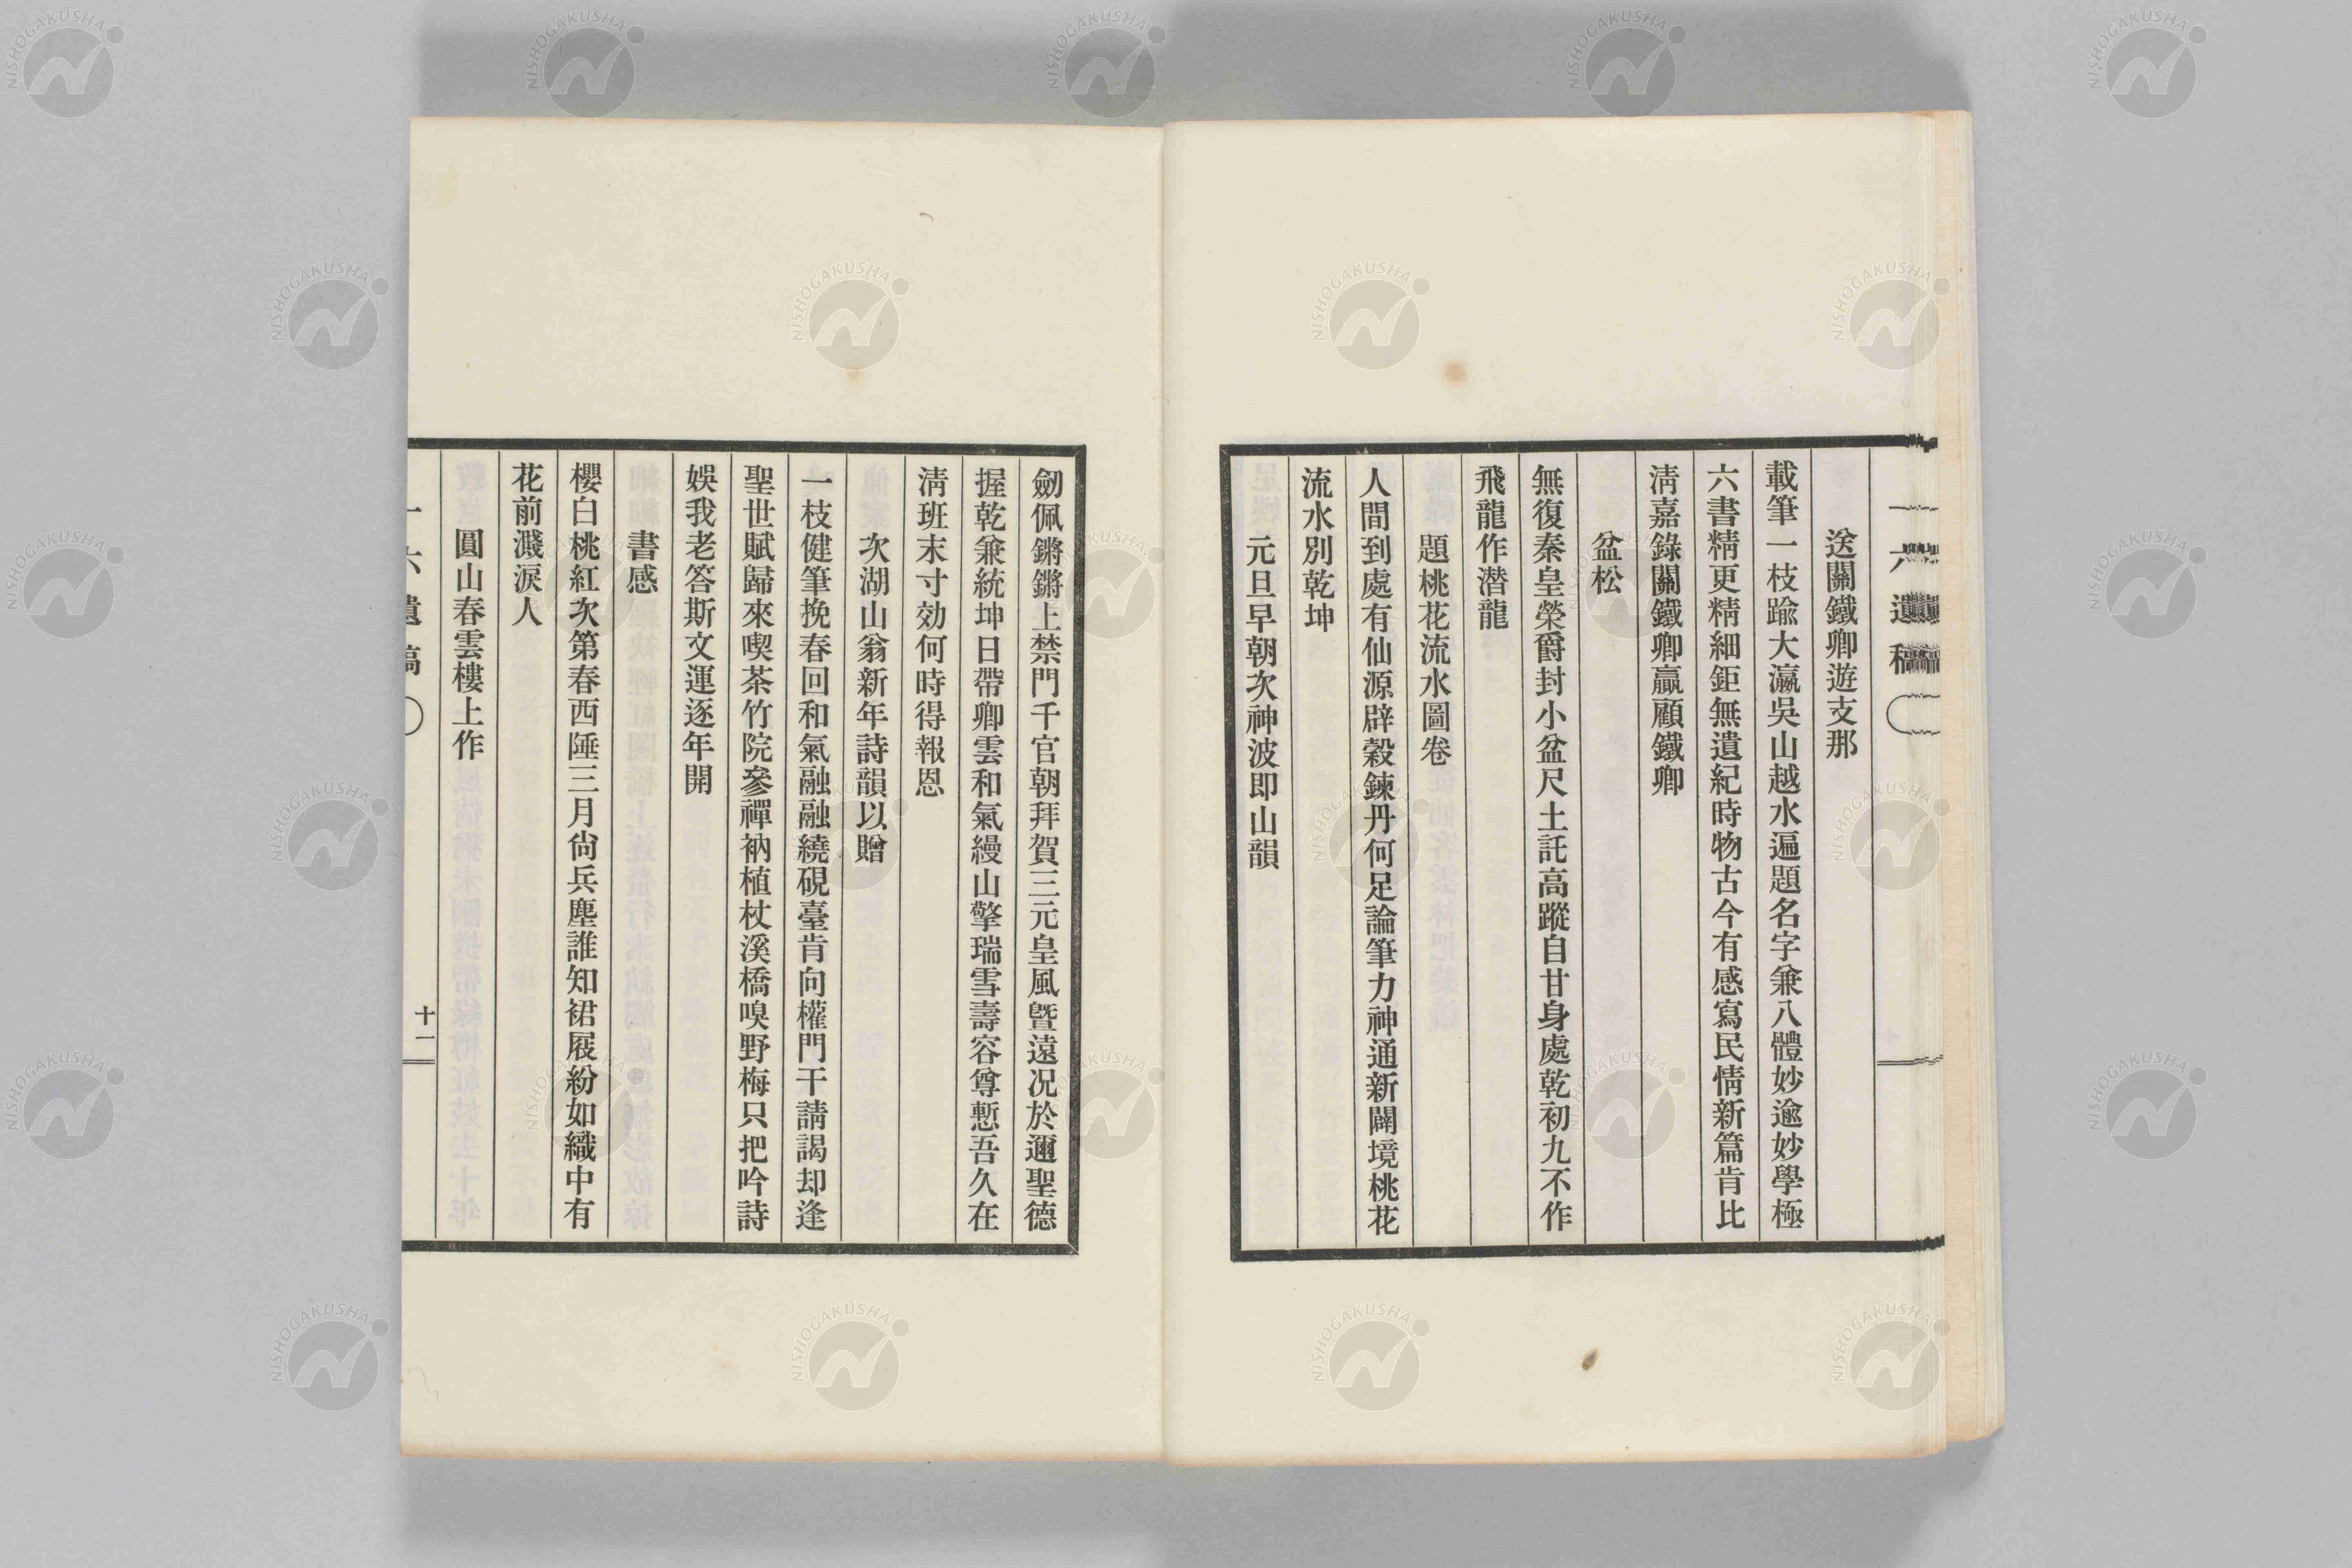 一六遺稿
送關鐵卿遊支那
載筆一枝踰大瀛吳山越水遍題名字兼八體妙逾妙學極
六書精更精細鉅無遺紀時物古今有感寫民情新篇肯比
淸嘉錄關鐵卿贏顧鐵卿
盆松
無復秦皇榮爵封小盆尺土託高蹤自甘身處乾初九不作
飛龍作潛龍
題桃花流水圖卷
人間到處有仙源辟穀鍊丹何足論筆力神通新闢境桃花
流水別乾坤
元旦早朝次神波即山韻
劒佩鏘鏘上禁門千官朝拜賀三元皇風曁遠況於邇聖德
握乾兼統坤日帶卿雲和氣縵山擎瑞雪壽容尊慙吾久在
淸班末寸効何時得報恩
次湖山翁新年詩韻以贈
一枝健筆挽春回和氣融融繞硯臺肯向權門干請謁却逢
聖世賦歸來喫茶竹院參禪衲植杖溪橋嗅野梅只把吟詩
娛我老答斯文運逐年開
書感
櫻白桃紅次第春西陲三月尙兵塵誰知裙屐紛如織中有
花前濺淚人
圓山春雲樓上作
一六遺稿
十一
NISHOGAKUSHA